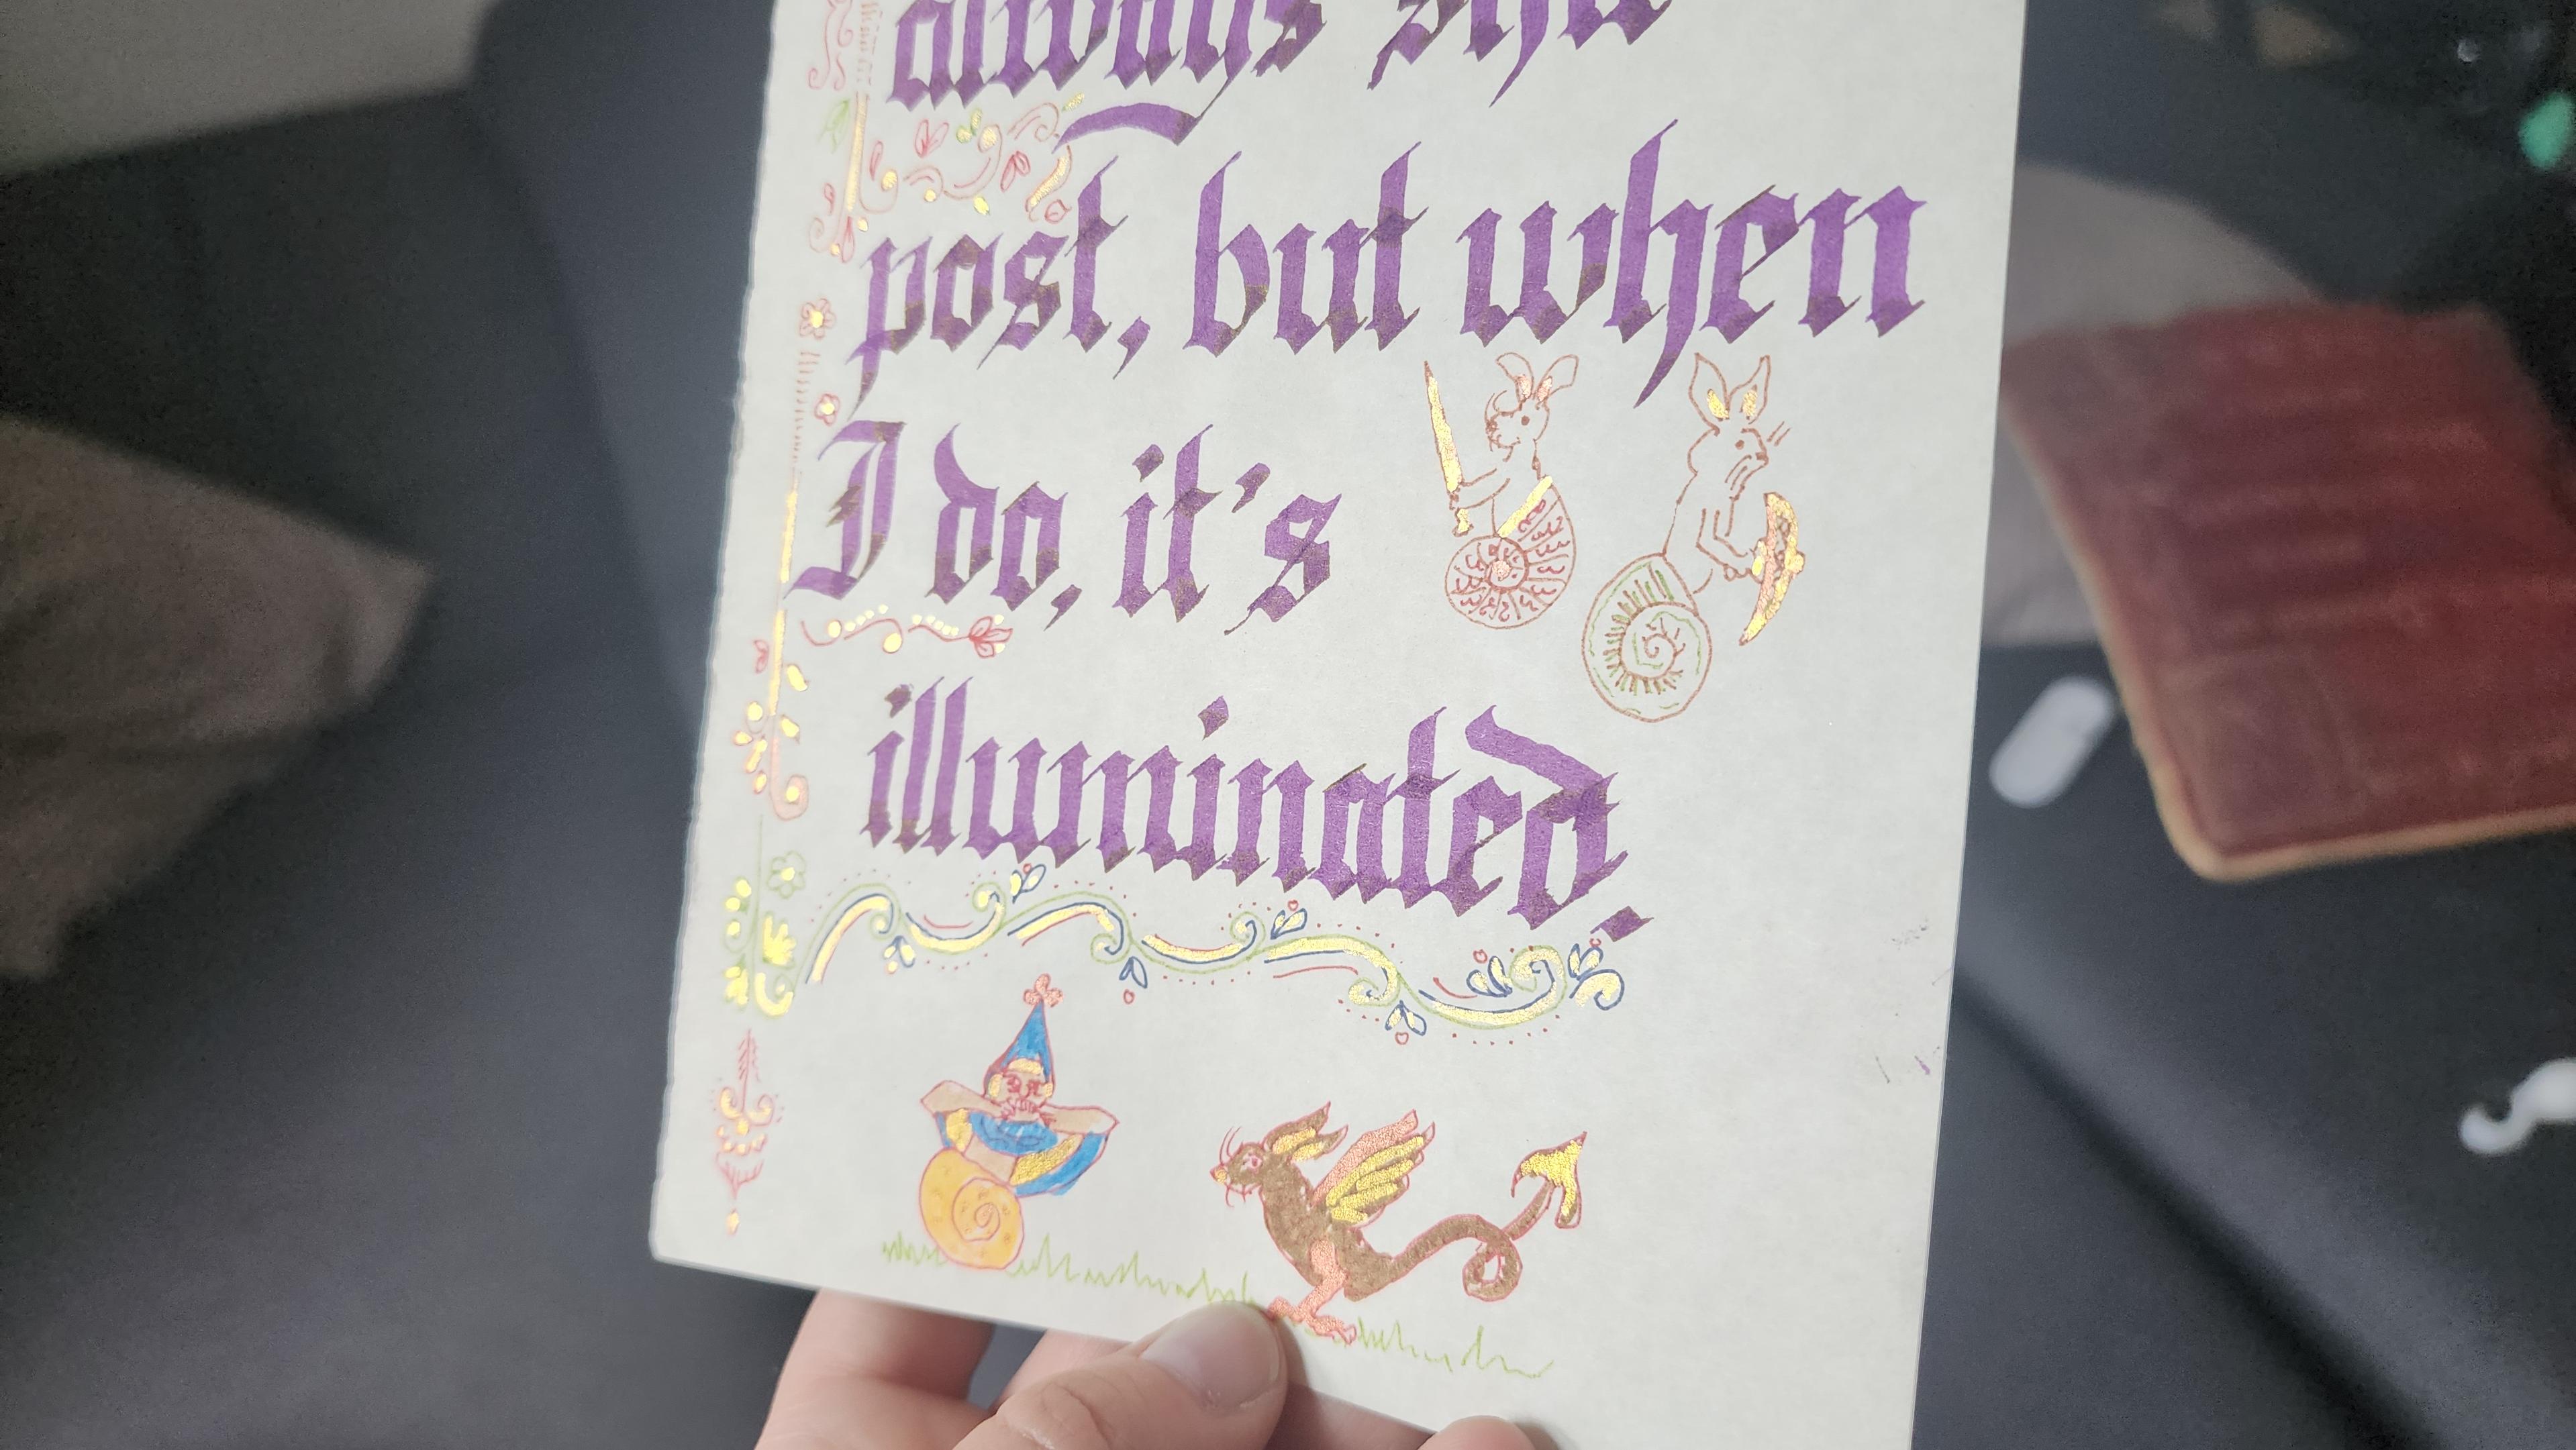 always shit
post, but when
I do, it's
illuminated.